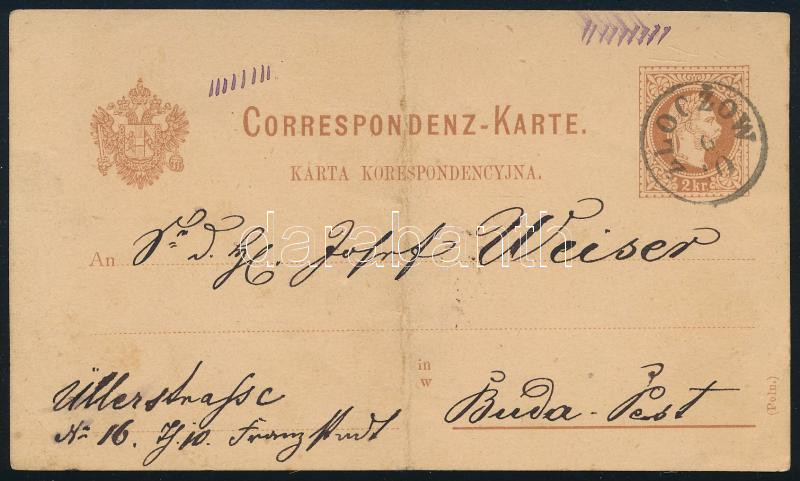 CORRESPONDENZ-KARTE.
KARTA KORESPONDENCYJNA.
ZLOCZOW
2 kr.
An Sr d. H. Josef Weiser
darabanth
in
w
Üllerstrasse
Buda-Pest
No 16. Th. 10. Franzstadt
(Poln.)